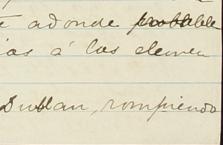 adonde probable
ias á las eleven
Dublan, rompiendo